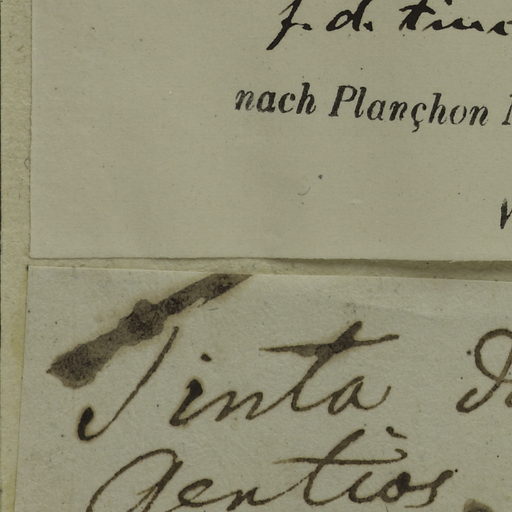 f. d. tinc
nach Plançhon
Tinta d
Gentios